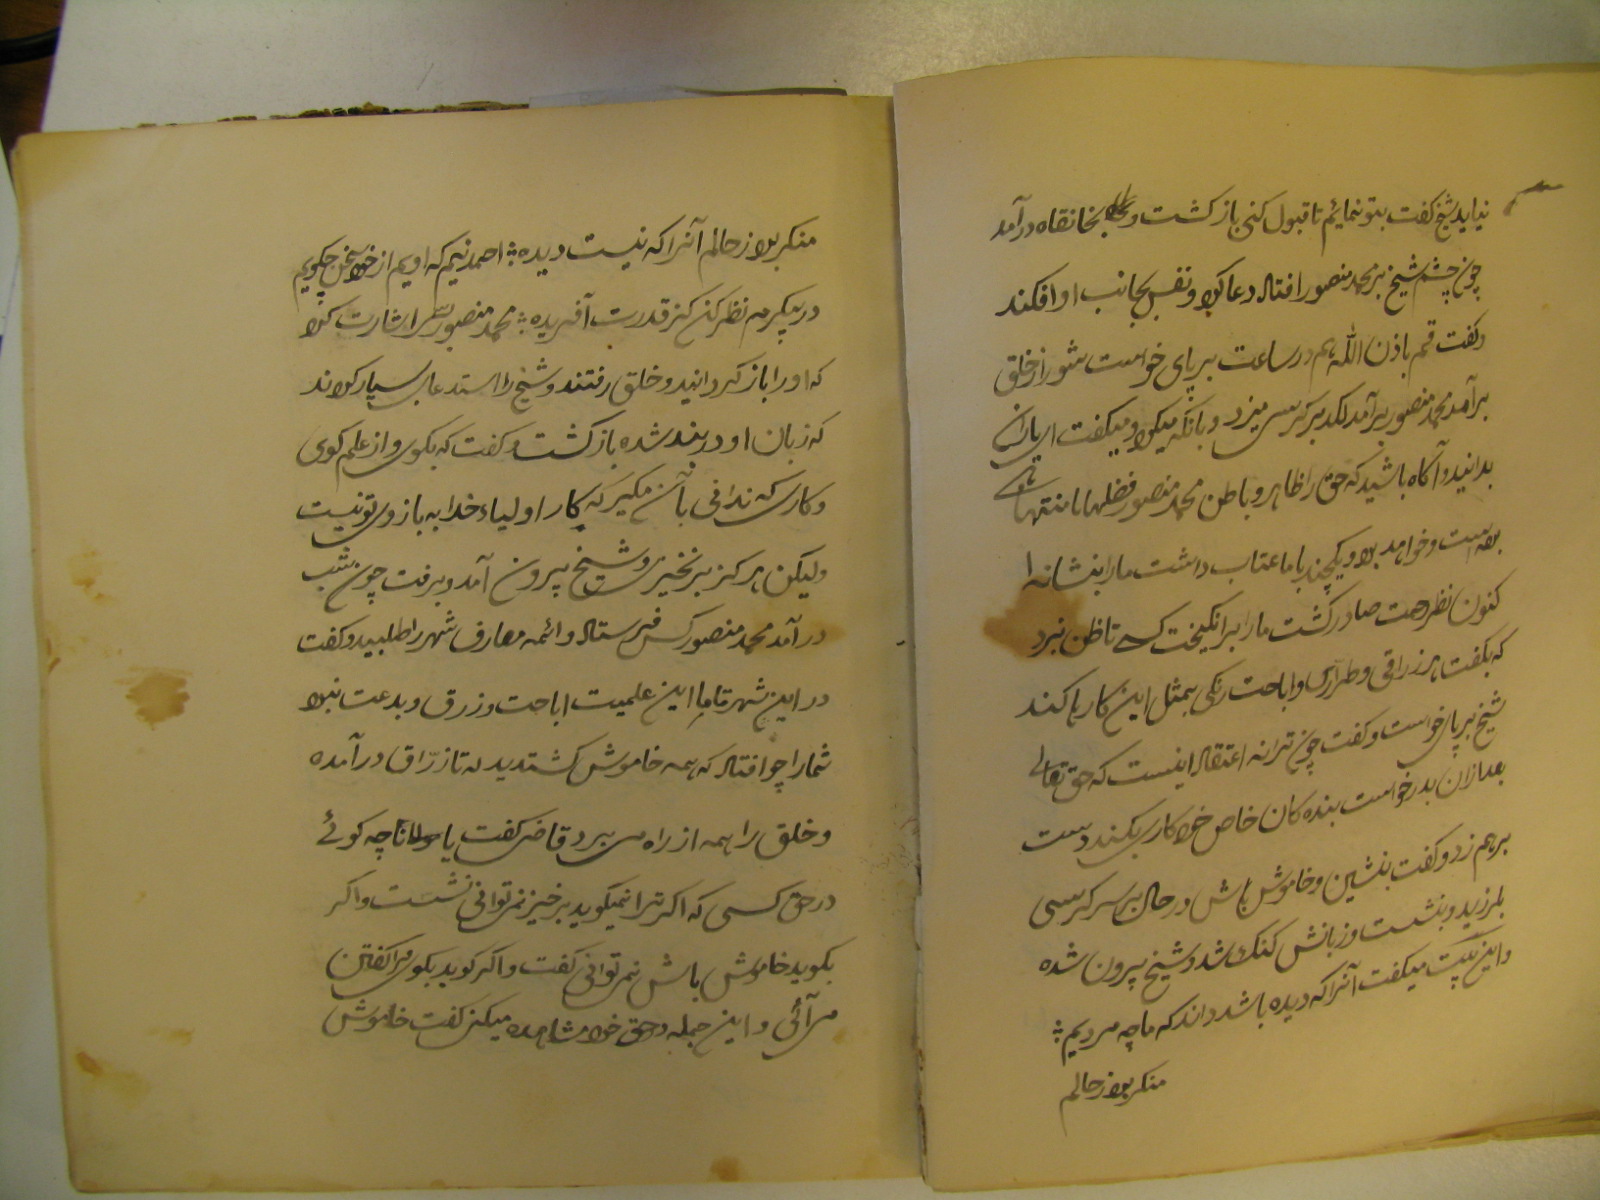 نیاید شیخ گفت بتو نمائیم تا قبول کنی باز گشت و بخانقاه درآمد
چون چشم شیخ بر محمد منصور افتاد دعا کرد و نفس بجانب او افکند
و گفت قم باذن الله هم در ساعت بر پای خواست شور از خلق
برآمد محمد منصور برآمد لکد بر کرسی میزد و بانک میکرد و میکفت ای یاران
بدانید و آکاه باشید که حق را ظاهر و باطن محمد منصور فضلها نامتنهای
بوده است و خواهد بود و یکچند با ما عتاب داشت ما را بنشاند
کنون نظر رحمت صادر کشت ما را برانکیخت کسی تا ظن نبرد
که بکفت هر زراقی و طراری و اباحت رنکی بمثل این کارها کند
شیخ بر پای خواست و کفت چون ترا نه اعتقاد اینست که حق تعالی
بعد ازان بدرخواست بنده کان خاص خود کاری بکند دست
برهم زد و کفت بنشین و خاموش باش در حال بر سر کرسی
بلرزید و بنشست و زبانش کنک شد و شیخ بیرون شده
و این بیت میکفت آنرا که دیده باشد داند که ما چه مردیم
منکر بود ز حالم
منکر بود ز حالم آنرا که نیست دیده احمد نیم که اویم از خود سخن چکویم
در پیکرم نظر کن کز قدرت آفریده محمد منصور بسر اشارت کرد
که او را باز کردانید و خلق رفتند و شیخ را استدعای بسیار کردند
که زبان او در بند شده باز کشت و کفت که بکوی و از علم کوی
و کاری که ندانی بآن مکیر که کار اولیاء خدا به بازوی تو نیست
ولیکن هرکز برنخیزی و شیخ بیرون آمد و برفت چون شب
درآمد محمد منصور کس فرستاد و ائمه معارف شهر را طلبید و کفت
در این شهر تا ما این علمیت اباحت و زرق و بدعت نبود
شما را چه افتاد که همه خاموش کشتدید تا زراق درآمده
و خلق را همه از راه می برد قاضی کفت یا مولانا چه کوئے
در حق کسی که اکر ترا نمیکوید برخیز نمی توانی نشست و اکر
بکوید خاموش باش نمی توانی کفت و اکر کوید بکوی در کفتن
می آئی و این جمله در حق خود مشاهده میکنی کفت خاموش